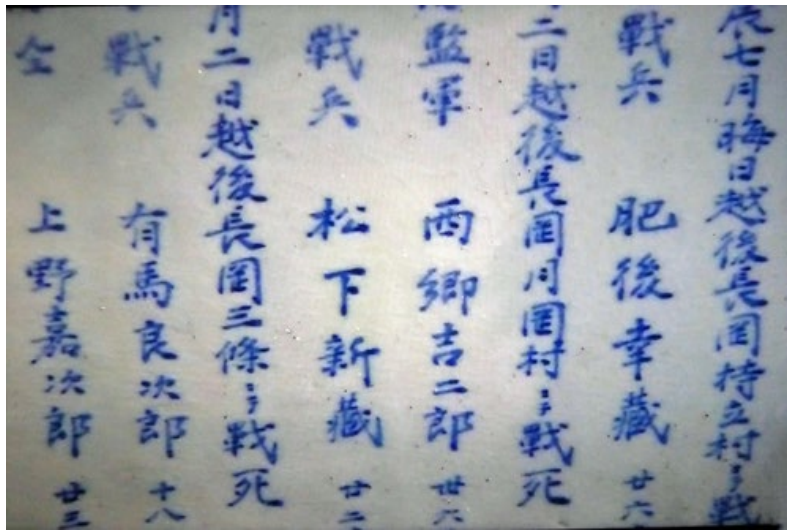 辰七月晦日越後長岡持立村ニ戰
戰兵 肥後幸藏 廿六
二日越後長岡月岡村ニ而戰死
監軍 西郷吉二郎 卅六
戰兵 松下新藏 廿二
月二日越後長岡三條ニ而戰死
戰兵 有馬良次郎 十八
仝 上野嘉次郎 廿三